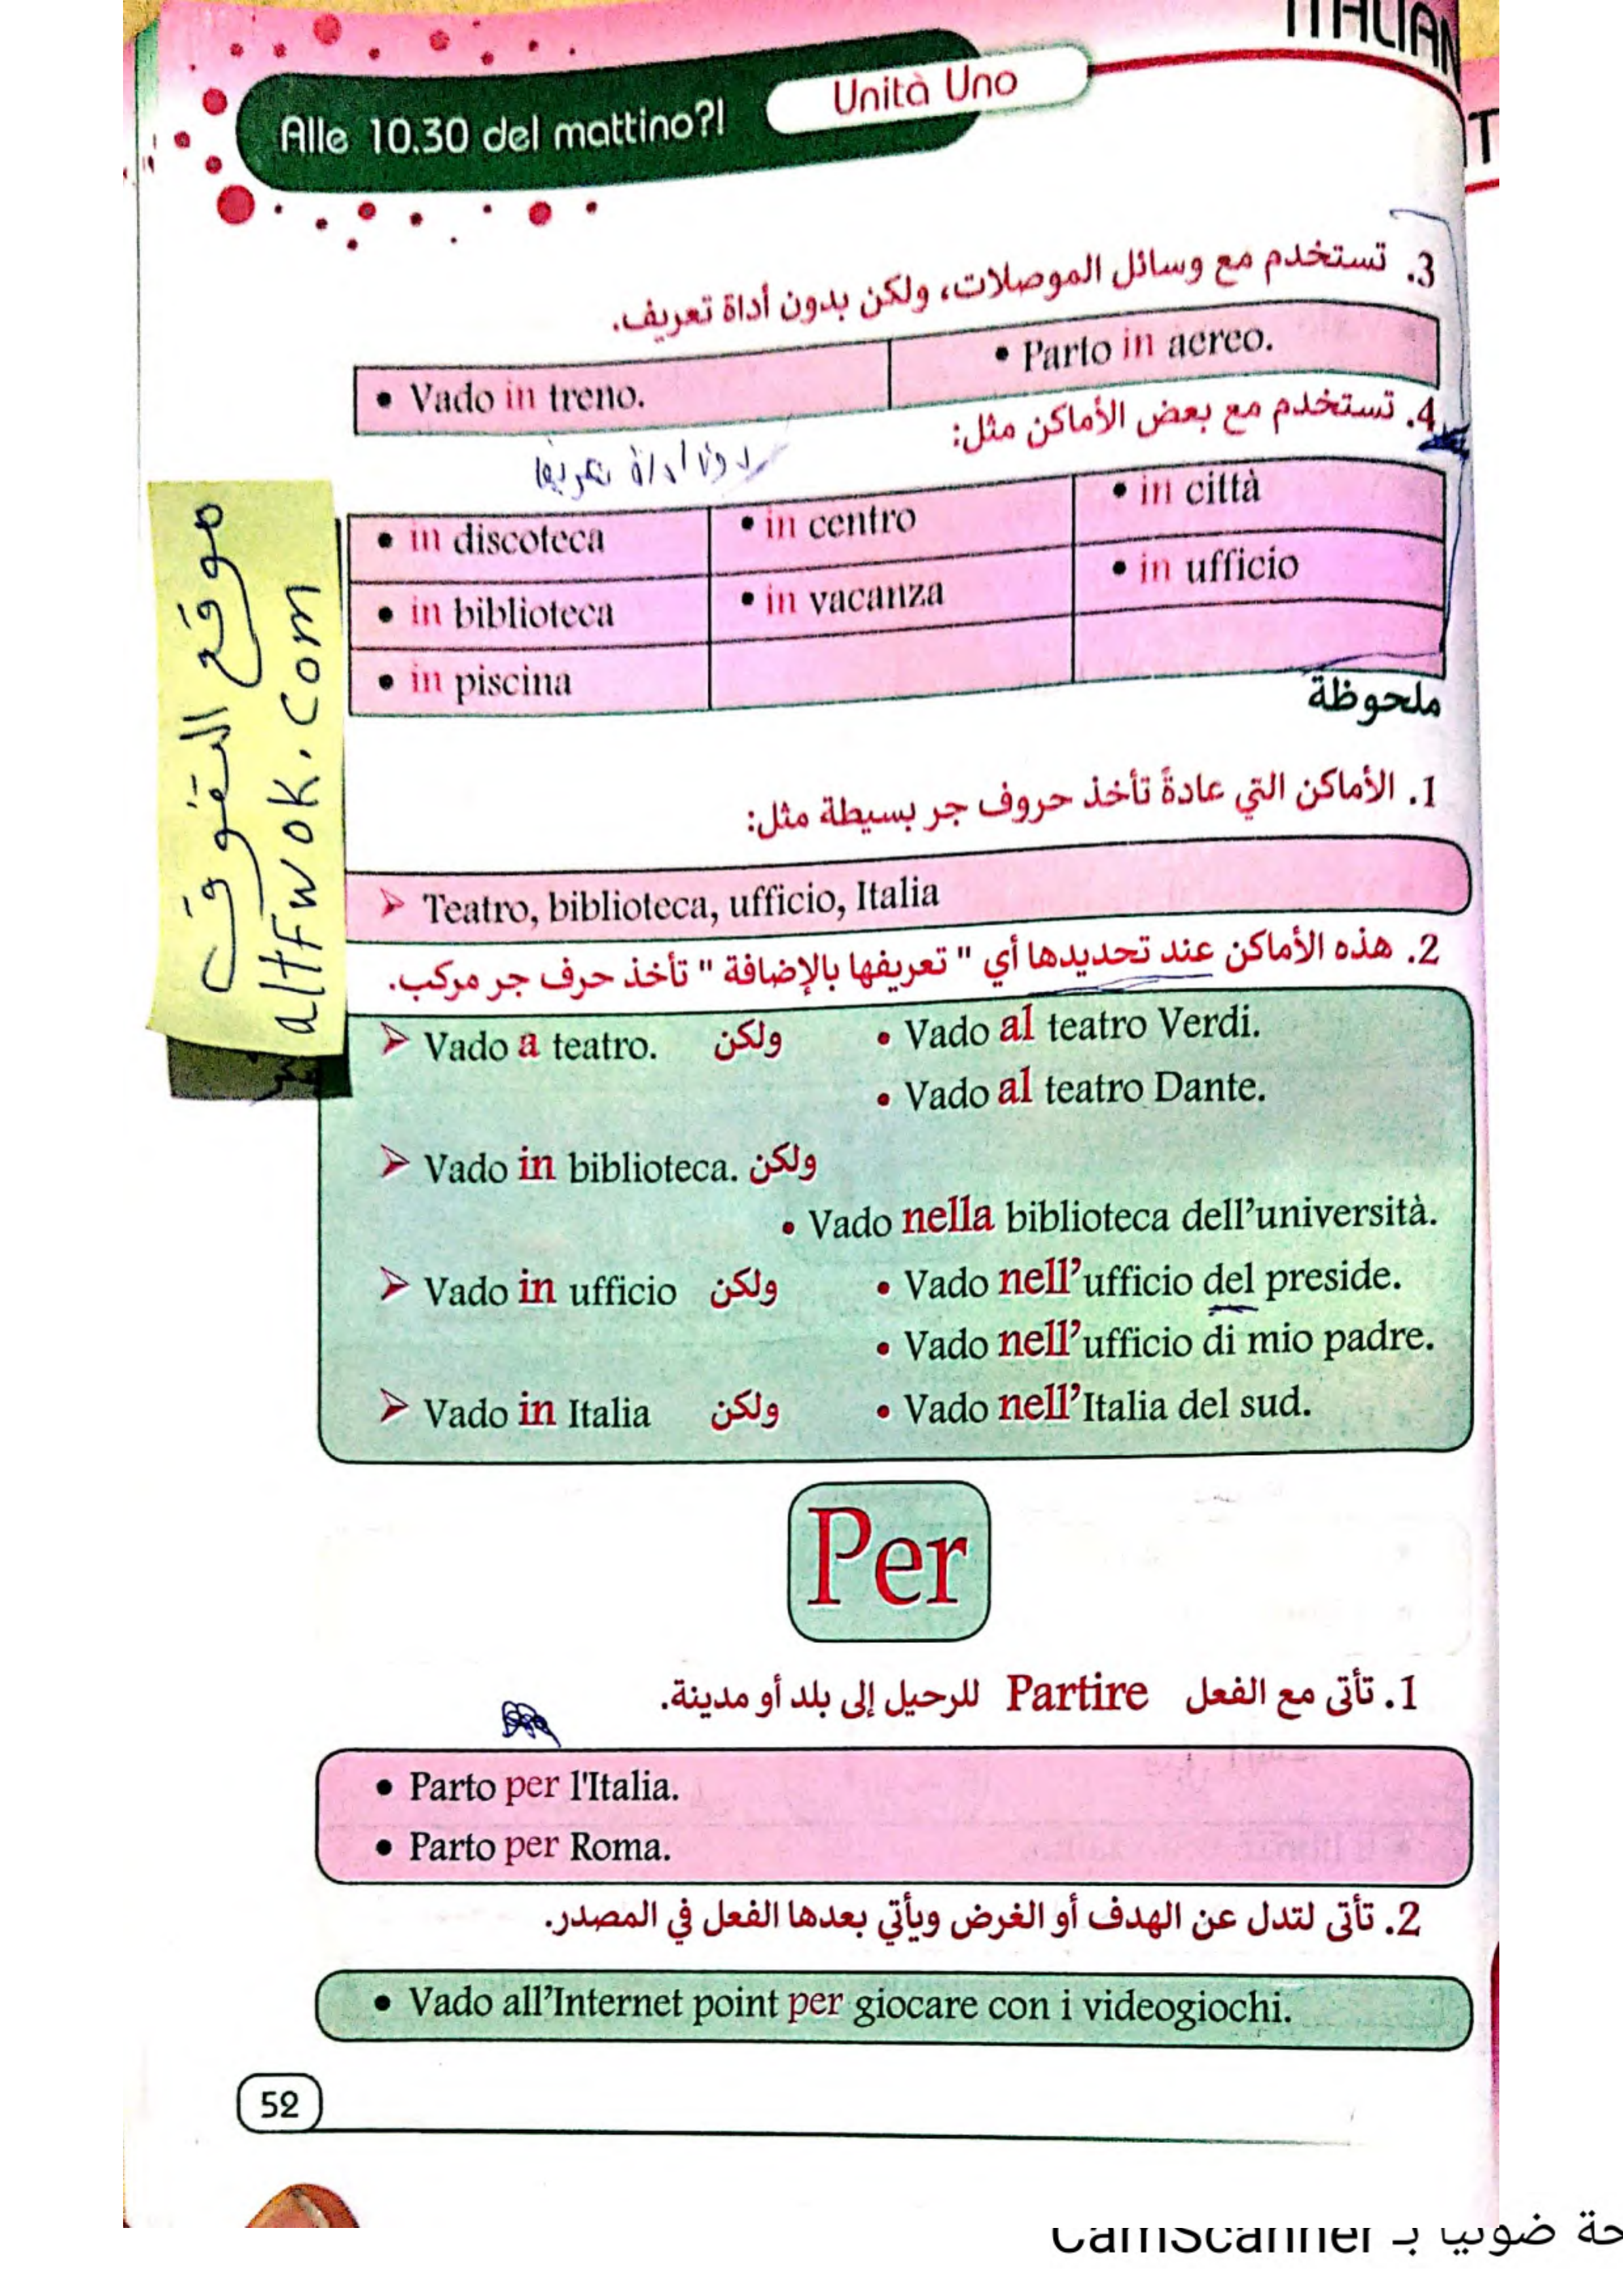 ITALIAN
Alle 10.30 del mattino?!
Unità Uno
3. تستخدم مع وسائل الموصلات، ولكن بدون أداة تعريف.
• Vado in treno.
• Parto in aereo.
4. تستخدم مع بعض الأماكن مثل:
• in discoteca
• in centro
• in città
• in biblioteca
• in vacanza
• in ufficio
• in piscina
موقع التفوق
altFwok.com
ملحوظة
1. الأماكن التي عادةً تأخذ حروف جر بسيطة مثل:
➢ Teatro, biblioteca, ufficio, Italia
2. هذه الأماكن عند تحديدها أي " تعريفها بالإضافة " تأخذ حرف جر مركب.
➢ Vado a teatro. ولكن • Vado al teatro Verdi.
• Vado al teatro Dante.
➢ Vado in biblioteca. ولكن
• Vado nella biblioteca dell’università.
➢ Vado in ufficio ولكن • Vado nell’ufficio del preside.
• Vado nell’ufficio di mio padre.
➢ Vado in Italia ولكن • Vado nell’Italia del sud.
Per
1. تأتى مع الفعل Partire للرحيل إلى بلد أو مدينة.
• Parto per l'Italia.
• Parto per Roma.
2. تأتى لتدل عن الهدف أو الغرض ويأتي بعدها الفعل في المصدر.
• Vado all’Internet point per giocare con i videogiochi.
52
ضوئيا بـ CamScanner